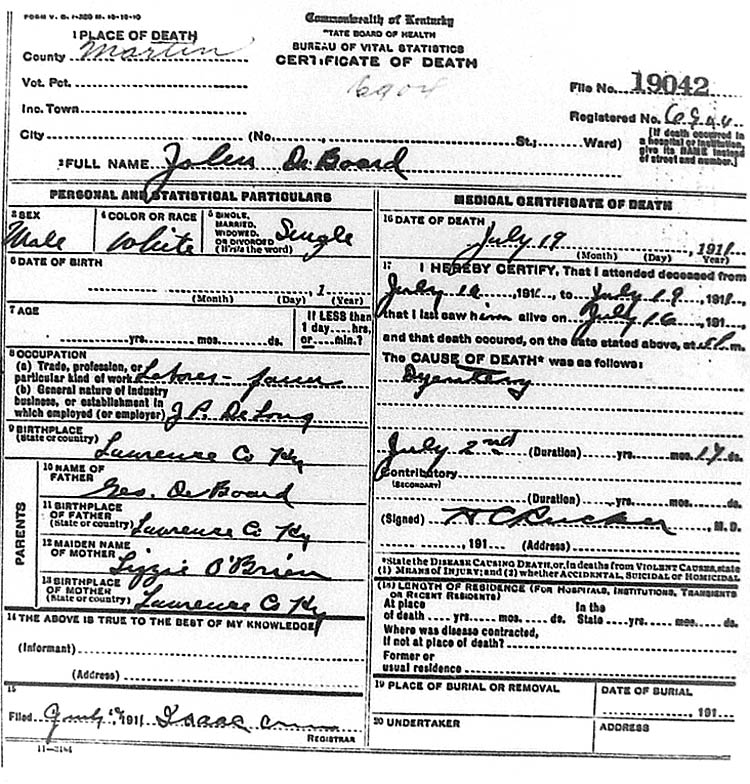 FORM V. S. 1-
Commonwealth of Kentucky
TATE BOARD OF HEALTH
BUREAU OF VITAL STATISTICS
CERTIFICATE OF DEATH
1 PLACE OF DEATH
County Martin
Vot. Pct.
Inc. Town
City (No. St.; Ward)
File No. 19042
Registered No.
[If death occurred in
a hospital or institution,
give its NAME instead
of street and number.]
2 FULL NAME John DeBoard
PERSONAL AND STATISTICAL PARTICULARS
3 SEX
Male
4 COLOR OR RACE
White
5 SINGLE,
MARRIED,
WIDOWED,
OR DIVORCED
(Write the word)
Single
6 DATE OF BIRTH
, 1
(Month) (Day) (Year)
7 AGE
yrs. mos. ds.
If LESS than
1 day....hrs.
or....min.?
8 OCCUPATION
(a) Trade, profession, or
particular kind of work
(b) General nature of industry
business, or establishment in
which employed (or employer) J P. DeLong
9 BIRTHPLACE
(State or country) Lawrence Co Ky
PARENTS
10 NAME OF
FATHER Geo. DeBoard
11 BIRTHPLACE
OF FATHER
(State or country) Lawrence Co Ky
12 MAIDEN NAME
OF MOTHER Lizzie O'Brien
13 BIRTHPLACE
OF MOTHER
(State or country) Lawrence Co Ky
14 THE ABOVE IS TRUE TO THE BEST OF MY KNOWLEDGE
(Informant)
(Address)
15
Filed 1911 Isaac
REGISTRAR
11-3184
MEDICAL CERTIFICATE OF DEATH
16 DATE OF DEATH
July 19, 1911
(Month) (Day) (Year)
17 I HEREBY CERTIFY, That I attended deceased from
July 16, 1911, to July 19, 1911,
that I last saw him alive on July 16, 191
and that death occured, on the date stated above, at m.
The CAUSE OF DEATH* was as follows:
Dysentery
July 2nd (Duration) yrs. mos. 17 ds.
Contributory
(SECONDARY)
(Duration) yrs. mos. ds.
(Signed) H C Rucker, M. D.
, 191 (Address)
*State the DISEASE CAUSING DEATH, or, in deaths from VIOLENT CAUSES, state
(1) MEANS OF INJURY; and (2) whether ACCIDENTAL, SUICIDAL or HOMICIDAL
(18) LENGTH OF RESIDENCE (FOR HOSPITALS, INSTITUTIONS, TRANSIENTS
OR RECENT RESIDENTS)
At place In the
of death yrs. mos. ds. State yrs. mos. ds.
Where was disease contracted,
If not at place of death?
Former or
usual residence
19 PLACE OF BURIAL OR REMOVAL
DATE OF BURIAL
, 191
20 UNDERTAKER
ADDRESS